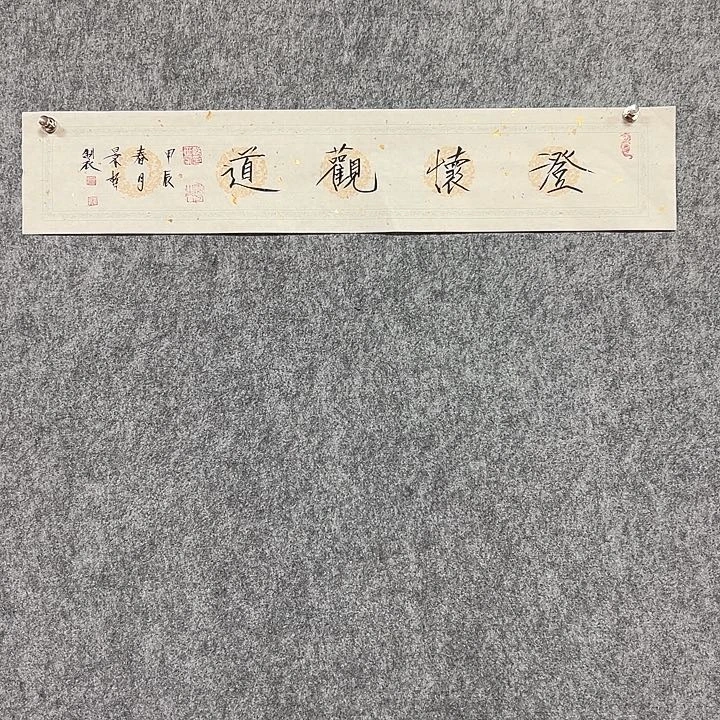 澄懷觀道
甲辰
春月
製